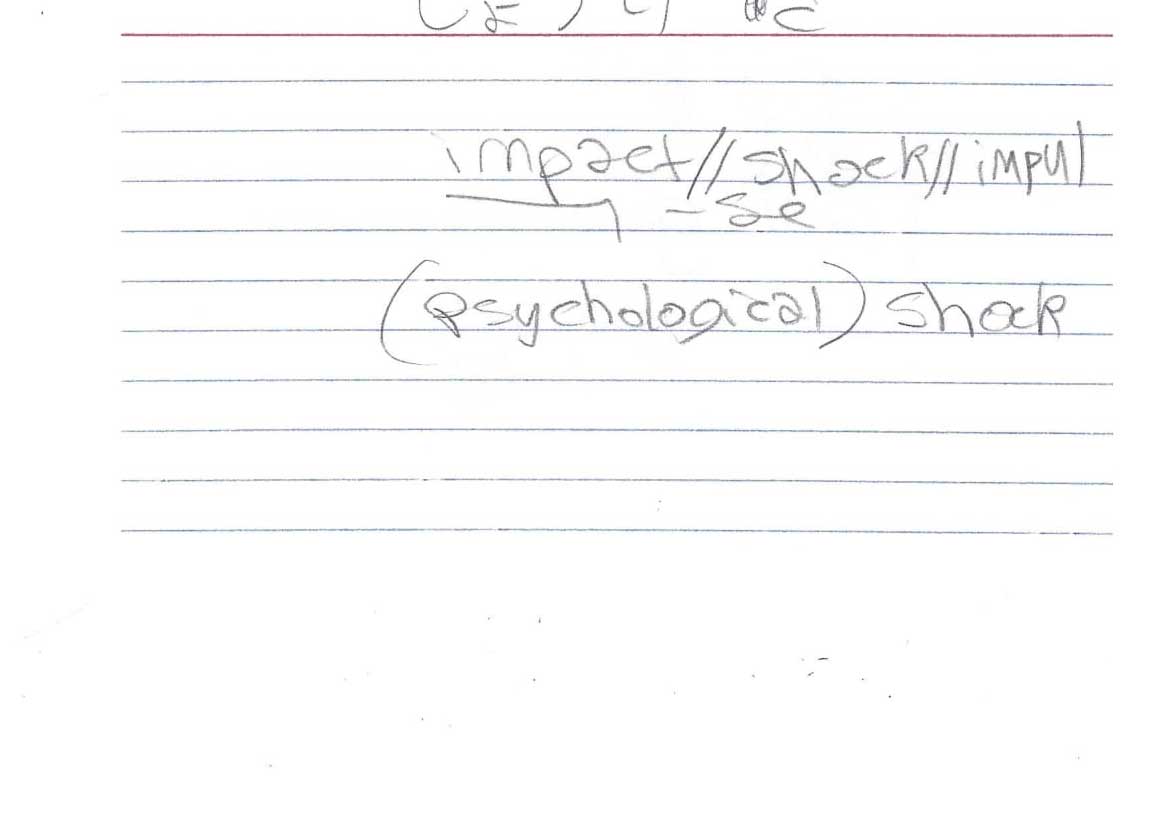 impact//shock//impul
-se
(psychological) shock